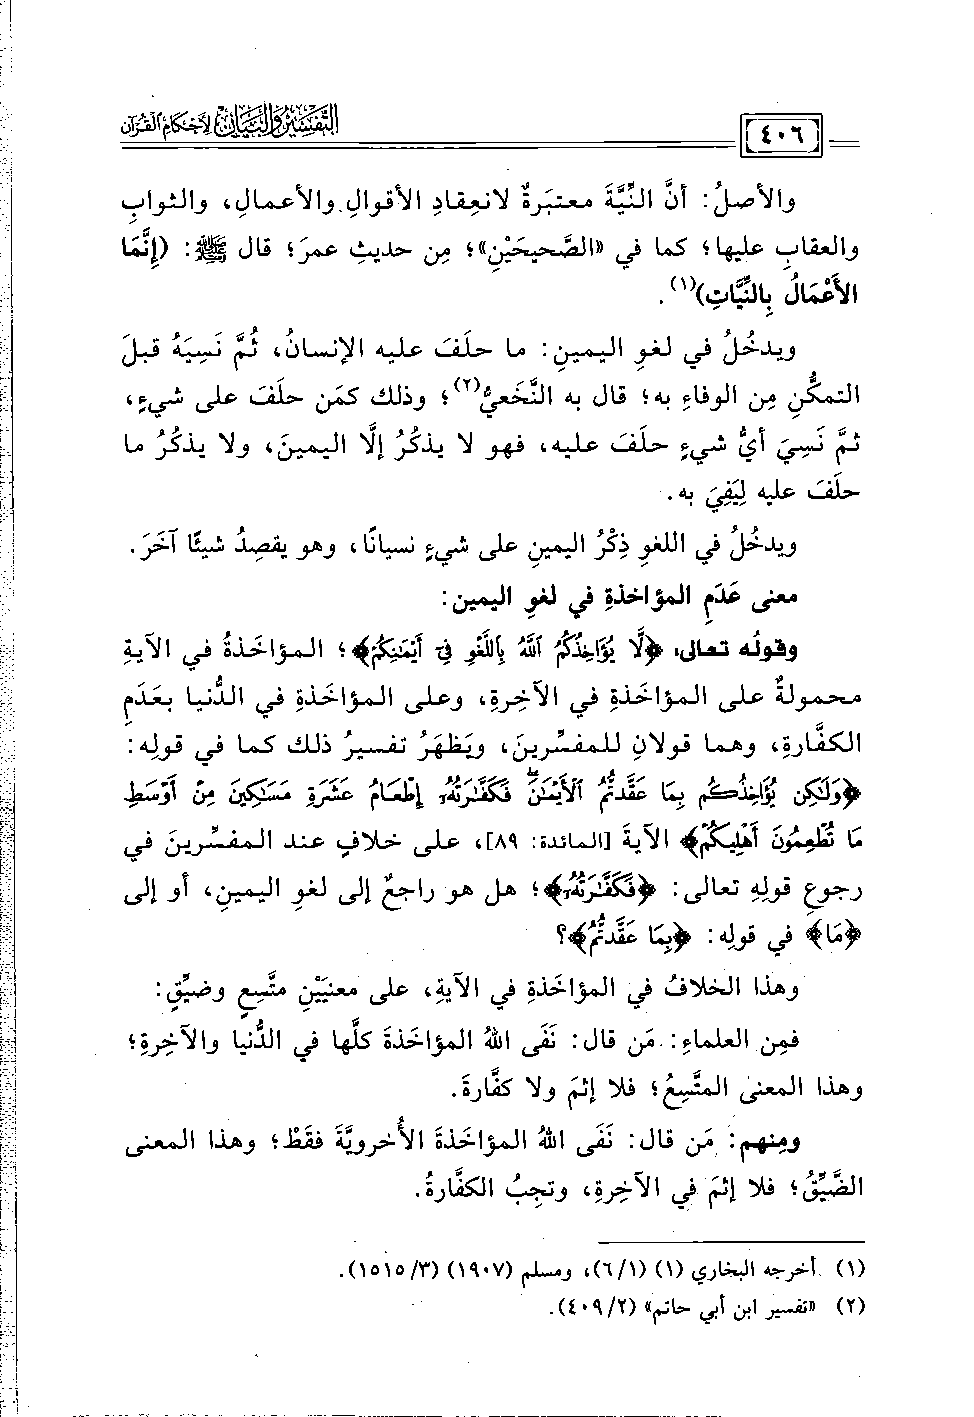 ٤٠٦
التفسير والبيان لأحكام القرآن
والأصلُ: أنَّ النِّيَّةَ معتبَرةٌ لانعِقادِ الأقوالِ والأعمالِ، والثوابِ
والعقابِ عليها؛ كما في «الصَّحيحَيْنِ»؛ مِن حديثِ عمرَ؛ قال ﷺ: (إِنَّمَا
الأَعْمَالُ بِالنِّيَّاتِ)(١).
ويدخُلُ في لغوِ اليمينِ: ما حلَفَ عليه الإنسانُ، ثُمَّ نَسِيَهُ قبلَ
التمكُّنِ مِن الوفاءِ به؛ قال به النَّخَعيُّ(٢)؛ وذلك كمَن حلَفَ على شيءٍ،
ثمَّ نَسِيَ أيُّ شيءٍ حلَفَ عليه، فهو لا يذكُرُ إلَّا اليمينَ، ولا يذكُرُ ما
حلَفَ عليه لِيَفِيَ به.
ويدخُلُ في اللغوِ ذِكْرُ اليمينِ على شيءٍ نسيانًا، وهو يقصِدُ شيئًا آخَرَ.
معنى عَدَمِ المؤاخذةِ في لغوِ اليمين:
وقولُه تعالى: ﴿لَّا يُؤَاخِذُكُمُ ٱللَّهُ بِٱللَّغْوِ فِىٓ أَيْمَٰنِكُمْ﴾؛ المؤاخَذةُ في الآيةِ
محمولةٌ على المؤاخَذةِ في الآخِرةِ، وعلى المؤاخَذةِ في الدُّنيا بعَدَمِ
الكفَّارةِ، وهما قولانِ للمفسِّرينَ، ويَظهَرُ تفسيرُ ذلك كما في قولِه:
﴿وَلَٰكِن يُؤَاخِذُكُم بِمَا عَقَّدتُّمُ ٱلْأَيْمَٰنَۖ فَكَفَّٰرَتُهُۥٓ إِطْعَامُ عَشَرَةِ مَسَٰكِينَ مِنْ أَوْسَطِ
مَا تُطْعِمُونَ أَهْلِيكُمْ﴾ الآيةَ [المائدة: ٨٩]، على خلافٍ عند المفسِّرينَ في
رجوعِ قولِهِ تعالى: ﴿فَكَفَّٰرَتُهُۥٓ﴾؛ هل هو راجعٌ إلى لغوِ اليمينِ، أو إلى
﴿مَا﴾ في قولِه: ﴿بِمَا عَقَّدتُّمُ﴾؟
وهذا الخلافُ في المؤاخَذةِ في الآيةِ، على معنيَيْنِ متَّسِعٍ وضيِّقٍ:
فمِن العلماءِ: مَن قال: نَفَى اللهُ المؤاخَذةَ كلَّها في الدُّنيا والآخِرةِ؛
وهذا المعنى المتَّسِعُ؛ فلا إثمَ ولا كفَّارةَ.
ومنهم: مَن قال: نَفَى اللهُ المؤاخَذةَ الأُخرويَّةَ فقَطْ؛ وهذا المعنى
الضَّيِّقُ؛ فلا إثمَ في الآخِرةِ، وتجِبُ الكفَّارةُ.
(١) أخرجه البخاري (١) (٦/١)، ومسلم (١٩٠٧) (١٥١٥/٣).
(٢) «تفسير ابن أبي حاتم» (٤٠٩/٢).